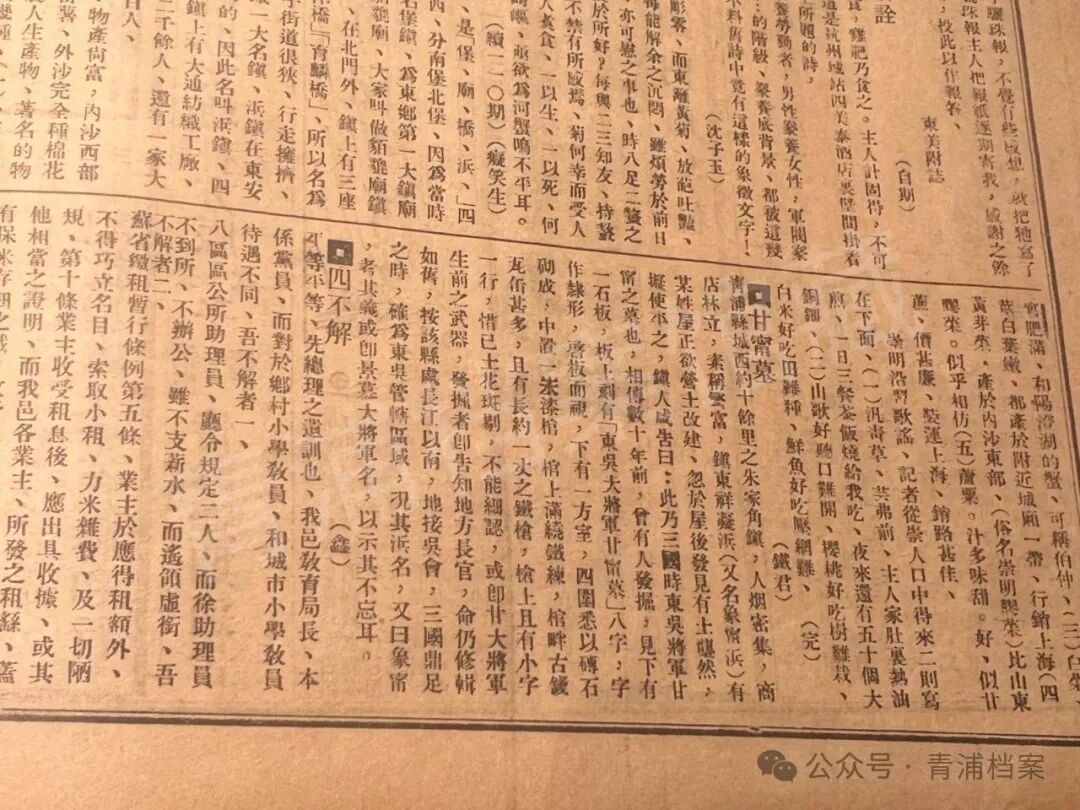 乎驪珠報、不覺有些感想、就把牠寫了
驪珠報主人把報紙逐期寄我、感謝之餘
、投此以作報答、
東美附誌
(白期)
詮
食、雞肥乃食之。主人計固得、不可
這是杭州城站四美泰酒店裏壁間掛着
上所題的詩、
豢養勞動者、男性豢養女性、軍閥豢
…的階級、豢養底背景、都被這幾
不料舊詩中竟有這樣的象徵文字！、
(沈子玉)
彫零、而東離黃菊、放葩吐艷、
每能解余之沉悶、雖煩勞於前日
於所好？每與二三知友、持螯
亦可慰之事也、時八足二螯之
不禁有所感焉、菊何幸而受人
人煮食、一以生、一以死、何
崎嶇、亟欲為河蟹鳴不平耳。
(續一一〇期)(癡笑生)
、是「堡、廟、橋、浜、」四
四、分南堡北堡、因為當時
名堡鎮、為東鄉第一大鎮廟
貔廟、大家叫做貊貔廟鎮
、在北門外、鎮上有三座
保橋」「育麟橋」、所以名為
子街道很狹、行走擁擠、
一大名鎮、浜鎮在東安
的、因此名叫浜鎮、四
鎮上有大通紡織工廠、
二千餘人、還有一家大
百人、
物產尚富、內沙西部
薯、外沙完全種棉花
人生產物、著名的物
蟹肥滿、和陽澄湖的蟹、可稱伯仲(三)白菜、
葉白葉嫩、都產於附近城廂一帶、行銷上海(四
黃芽菜、產於內沙東部、(俗名崇明膠菜)比山東
膠菜。似乎相彷(五)蘆粟。汁多味甜。好、似甘
蔗、價甚廉、裝運上海、銷路甚佳、
崇明浩習歌謠、記者從崇人口中得來二則寫
在下面、(一)汎靑草、芸弗前、主人家肚裏熱油
煎、一日三餐茶飯燒給我吃、夜來還有五十個大
銅鈿、(二)山歌好聽口難開、櫻桃好吃樹難栽、
白米好吃田難種、鮮魚好吃壓網難、(完)
甘甯墓(鐵君)
靑浦縣城西約十餘里之朱家角鎮、人烟密集、商
店林立、素稱繁富、鎮東祥凝浜(又名象甯浜)有
某姓屋正欲營土改建、忽於屋後發見有土礲然，
擬使平之、鎮人咸告曰：此乃三國時東吳將軍甘
甯之墓也、相傳數十年前、曾有人發掘，見下有
一石板，板上刻有「東吳大將軍甘甯墓」八字，字
作隸形，啓板而視，下有一方室，四圍悉以磚石
砌成，中置一朱漆棺，棺上滿繞鐵練，棺畔古錢
瓦缶甚多，且有長約一丈之鐵槍，槍上且有小字
一行，惜已土花斑剔，不能細認，或卽甘大將軍
生前之武器，發掘者卽告知地方長官，命仍修輯
如舊，按該縣處長江以南，地接吳會，三國鼎足
之時，確為東吳管轄區域，況其浜名，又曰象甯
，考其義或卽景慕大將軍名，以示其不忘耳。
四不解(鑫)
不等平等、先總理之遺訓也、我邑敎育局長、本
係黨員、而對於鄉村小學敎員、和城市小學敎員
待遇不同、吾不解者一、
八區區公所助理員、廳令規定二人、而徐助理員
不到所、不辦公、雖不支薪水、而遙領虛銜、吾
不解者二、
蘇省繳租暫行條例第五條、業主於應得租額外、
不得巧立名目、索取小租、力米雜費、及一切陋
規、第十條業主收受租息後、應出具收據、或其
他相當之證明、而我邑各業主、所發之租繇、蓋
公众号·青浦档案